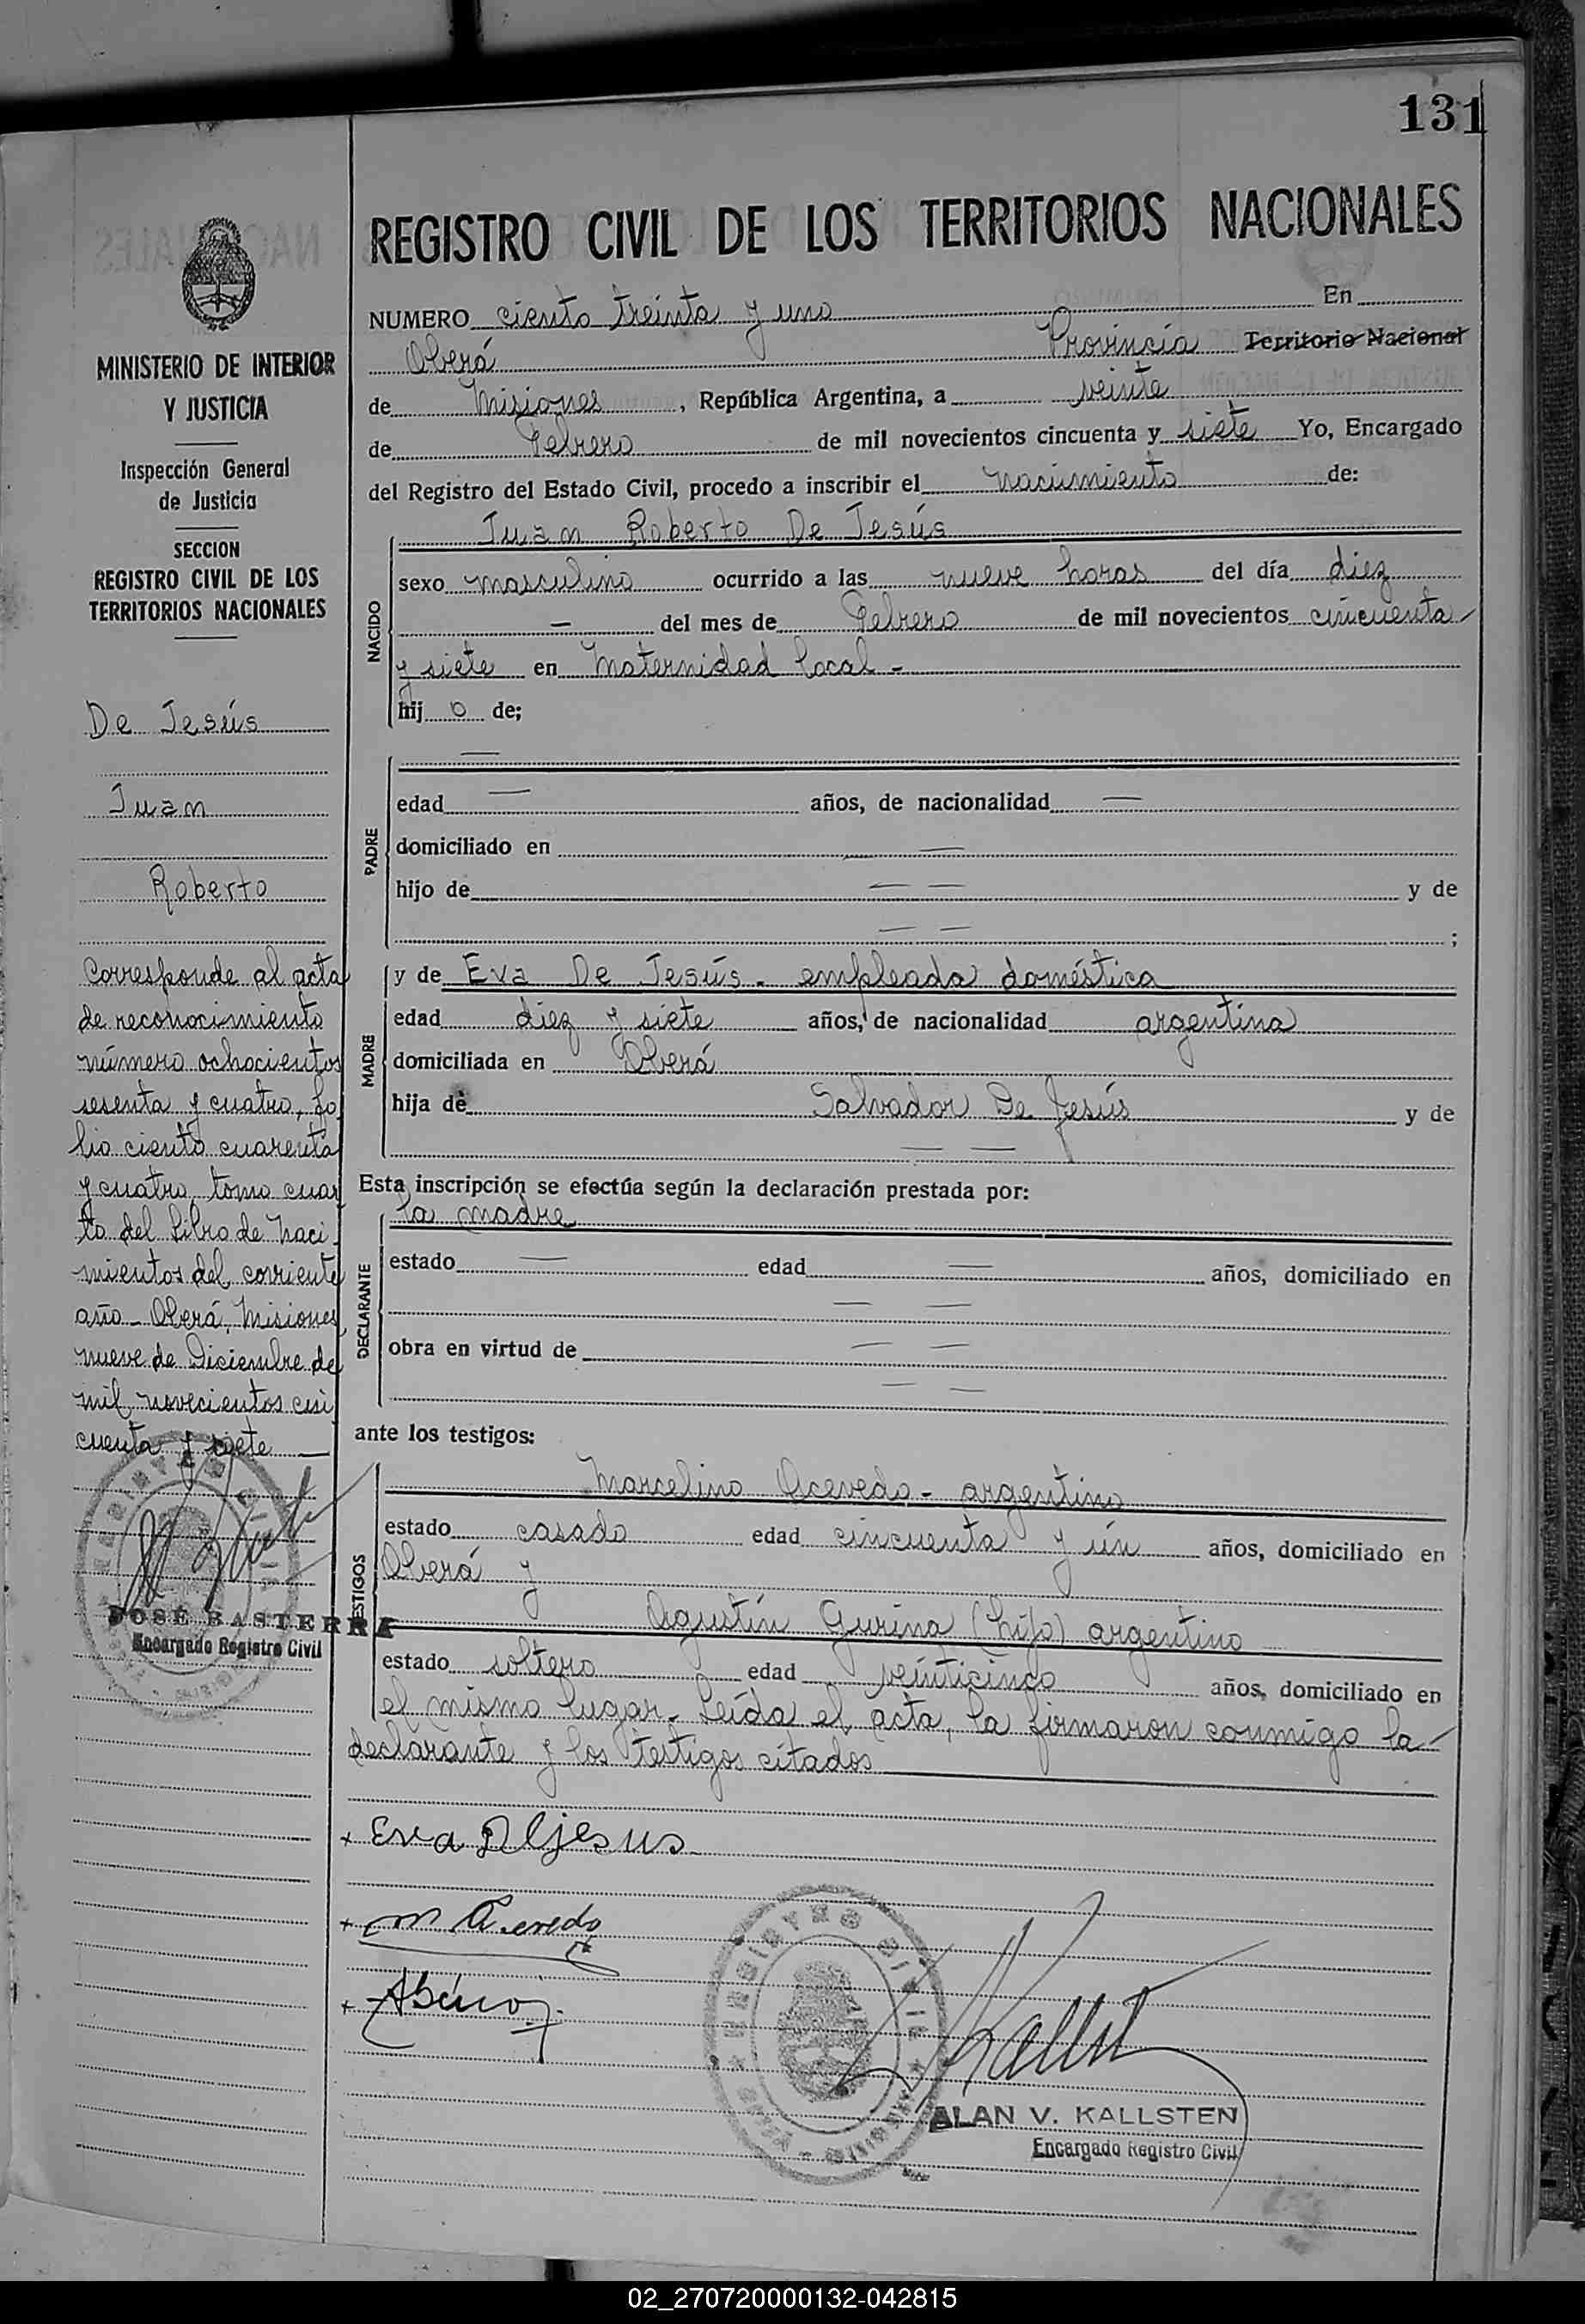 131
REGISTRO CIVIL DE LOS TERRITORIOS NACIONALES
MINISTERIO DE INTERIOR
Y JUSTICIA
Inspección General
de Justicia
SECCION
REGISTRO CIVIL DE LOS
TERRITORIOS NACIONALES
De Jesús
Juan
Roberto
Corresponde al acta
de reconocimiento
número ochocientos
sesenta y cuatro, fo
lio ciento cuarenta
y cuatro, tomo cuar
to del Libro de Naci
mientos del corriente
año - Oberá, Misiones,
nueve de Diciembre de
mil novecientos cin
cuenta y siete
JOSÉ BASTERRA
Encargado Registro Civil
NUMERO ciento treinta y uno En
Oberá Provincia Territorio Nacional
de Misiones, República Argentina, a veinte
de Febrero de mil novecientos cincuenta y siete Yo, Encargado
del Registro del Estado Civil, procedo a inscribir el nacimiento de:
NACIDO
Juan Roberto De Jesús
sexo masculino ocurrido a las nueve horas del día diez
— del mes de Febrero de mil novecientos cincuenta
y siete en Maternidad local -
hij o de;
PADRE
—
edad — años, de nacionalidad —
domiciliado en —
hijo de — — y de
— — ;
MADRE
y de Eva De Jesús - empleada doméstica
edad diez y siete años, de nacionalidad argentina
domiciliada en Oberá
hija de Salvador De Jesús y de
— —
Esta inscripción se efectúa según la declaración prestada por:
DECLARANTE
la madre
estado — edad — años, domiciliado en
— —
obra en virtud de — —
— —
ante los testigos:
TESTIGOS
Marcelino Acevedo - argentino
estado casado edad cincuenta y un años, domiciliado en
Oberá y
Agustín Gurina (hijo) argentino
estado soltero edad veinticinco años, domiciliado en
el mismo lugar - Leída el acta, la firmaron conmigo la
declarante y los testigos citados
+ Eva D Ejesus
+ M Acevedo
REGISTRO CIVIL
ALAN V. KALLSTEN
Encargado Registro Civil
02_270720000132-042815